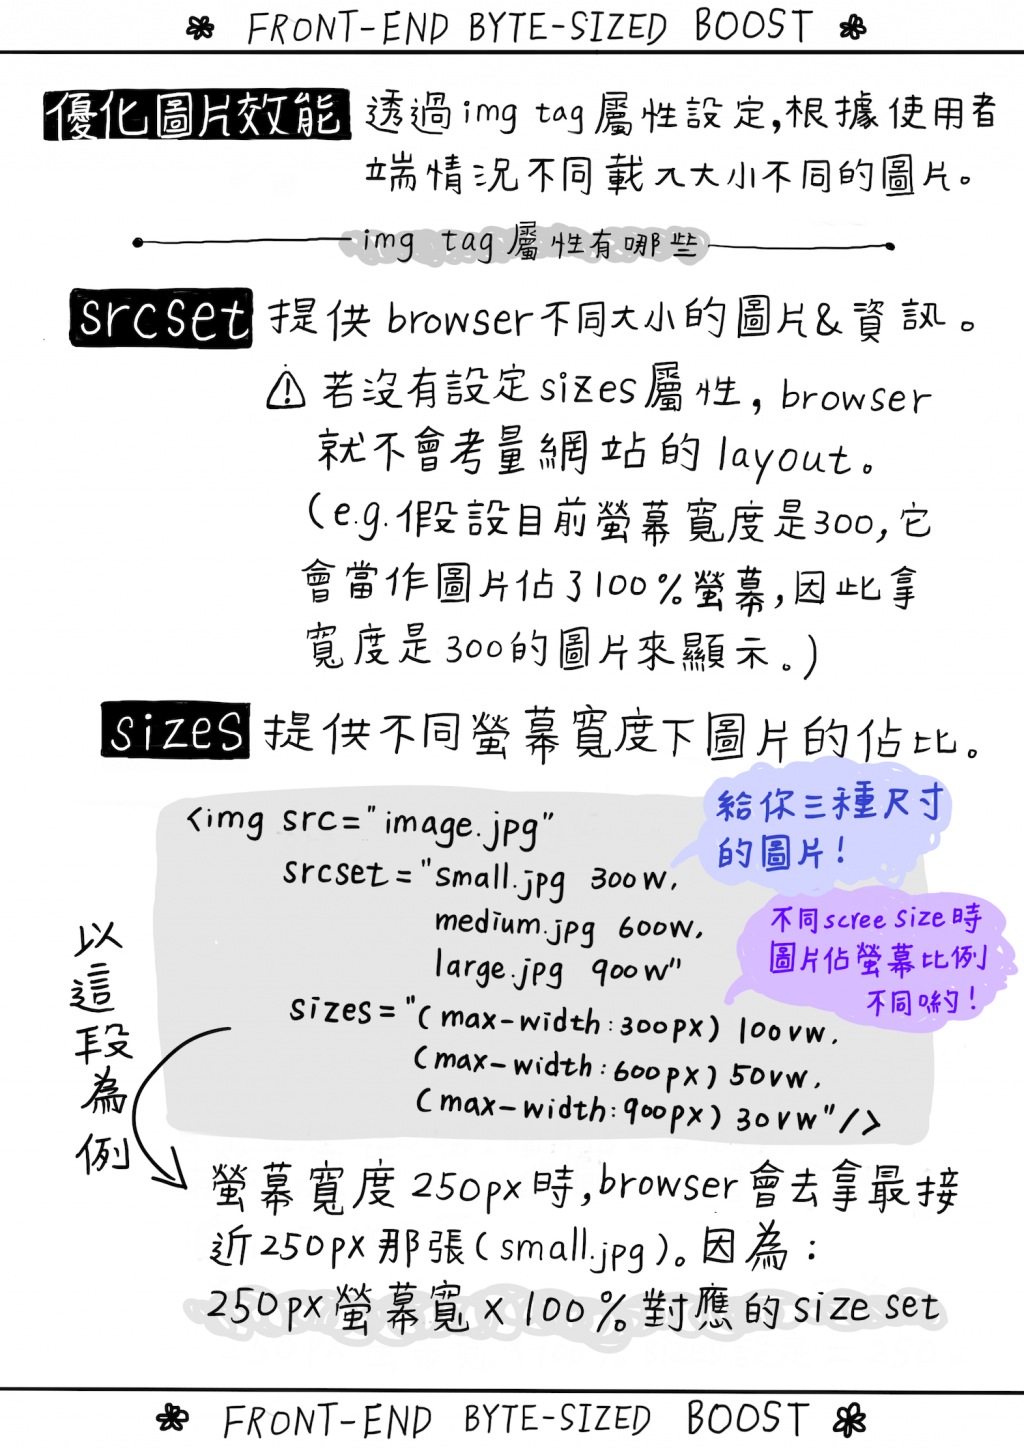 FRONT-END BYTE-SIZED BOOST
優化圖片效能 透過img tag屬性設定,根據使用者
端情況不同載入大小不同的圖片。
img tag屬性有哪些
srcset 提供browser不同大小的圖片&資訊。
⚠ 若沒有設定sizes屬性, browser
就不會考量網站的layout。
(e.g.假設目前螢幕寬度是300,它
會當作圖片佔了100%螢幕,因此拿
寬度是300的圖片來顯示。)
sizes 提供不同螢幕寬度下圖片的佔比。
給你三種尺寸
的圖片!
<img src="image.jpg"
srcset="small.jpg 300w,
medium.jpg 600w,
large.jpg 900w"
不同scree size時
圖片佔螢幕比例
不同喲!
sizes="(max-width:300px) 100vw,
(max-width:600px) 50vw,
(max-width:900px) 30vw"/>
以這段為例
螢幕寬度250px時,browser會去拿最接
近250px那張(small.jpg)。因為:
250px螢幕寬x100%對應的size set
FRONT-END BYTE-SIZED BOOST